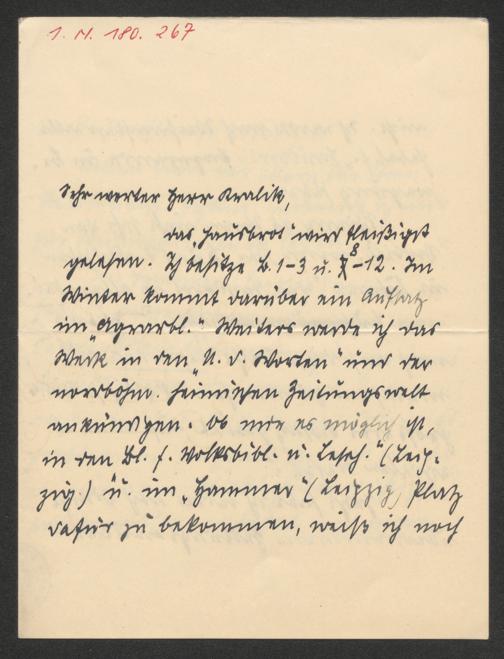 I. N. 180. 267
Sehr werter Herr Kralik,
das „Hausbrot“ wird fleißigst
gelesen. Ich besitze B. 1–3 u. 8–12. Im
Winter kommt darüber ein Aufsatz
im „Agrarbl.“ Weiters werde ich das
Werk in den „N. d. Worten“ und der
nordböhm. heimischen Zeitungswelt
ankündigen. Ob mir es möglich ist,
in den Bl. f. Volksbibl. u. Leseh.“ (Leip-
zig.) u. im „Hammer“ (Leipzig) Platz
dafür zu bekommen, weiß ich noch